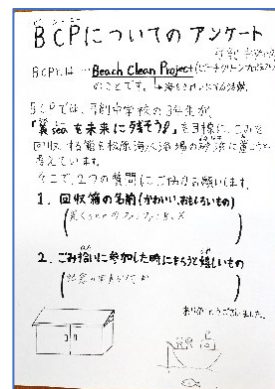 BCPについてのアンケート
弓削中学校
BCPとは…Beach Clean Project(ビーチクリーンプロジェクト)
のことです。 海をきれいにする活動。
BCPでは、弓削中学校の3年生が
「美seaを未来に残そう!!」を目標に、ごみを
回収する箱を松原海水浴場の砂浜に置こうと
考えています。
そこで、2つの質問にご協力お願いします。
1. 回収箱の名前(かわいい、おもしろいもの)
2. ごみ拾いに参加した時にもらうと嬉しいもの
ありがとうございました。